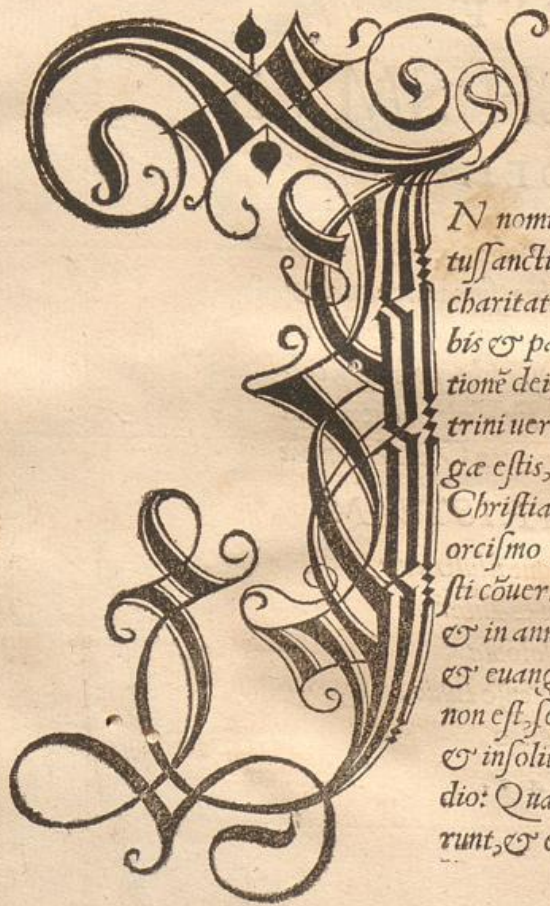 IN nomi
tuſſancti
charitat
bis & pa
tionẽ dei
trini uer
gæ eſtis,
Chriſtia
orciſmo
ſti cõuer
& in ann
& euang
non eſt, ſe
& inſolit
dio: Qua
runt, &